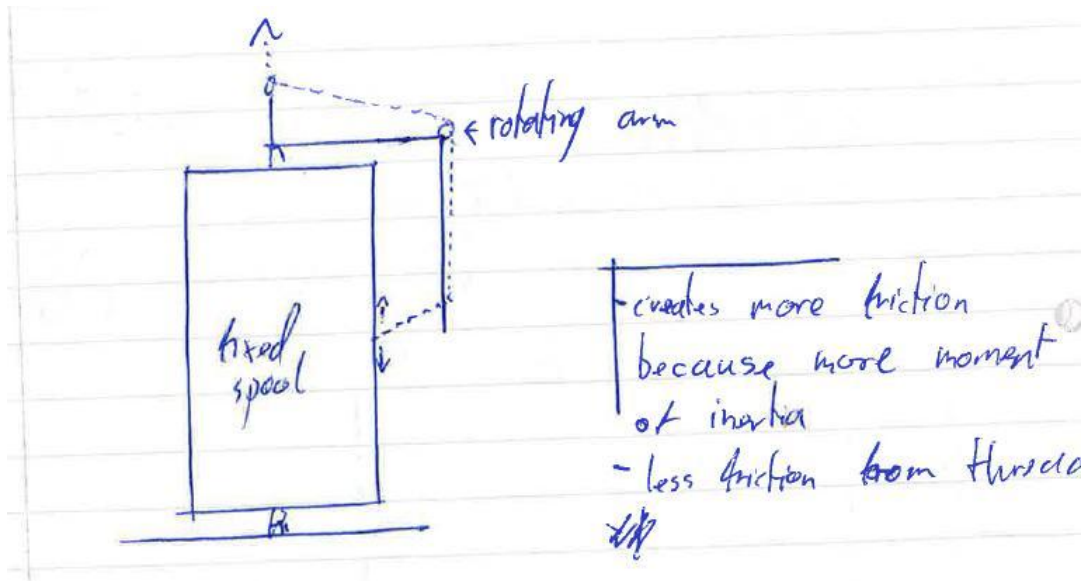 ← rotating arm
fixed
spool
- creates more friction
because more moment
of inertia
- less friction from thread